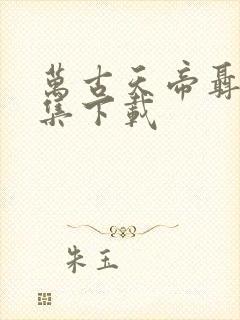 萬古天帝聶
集下載
朱玉